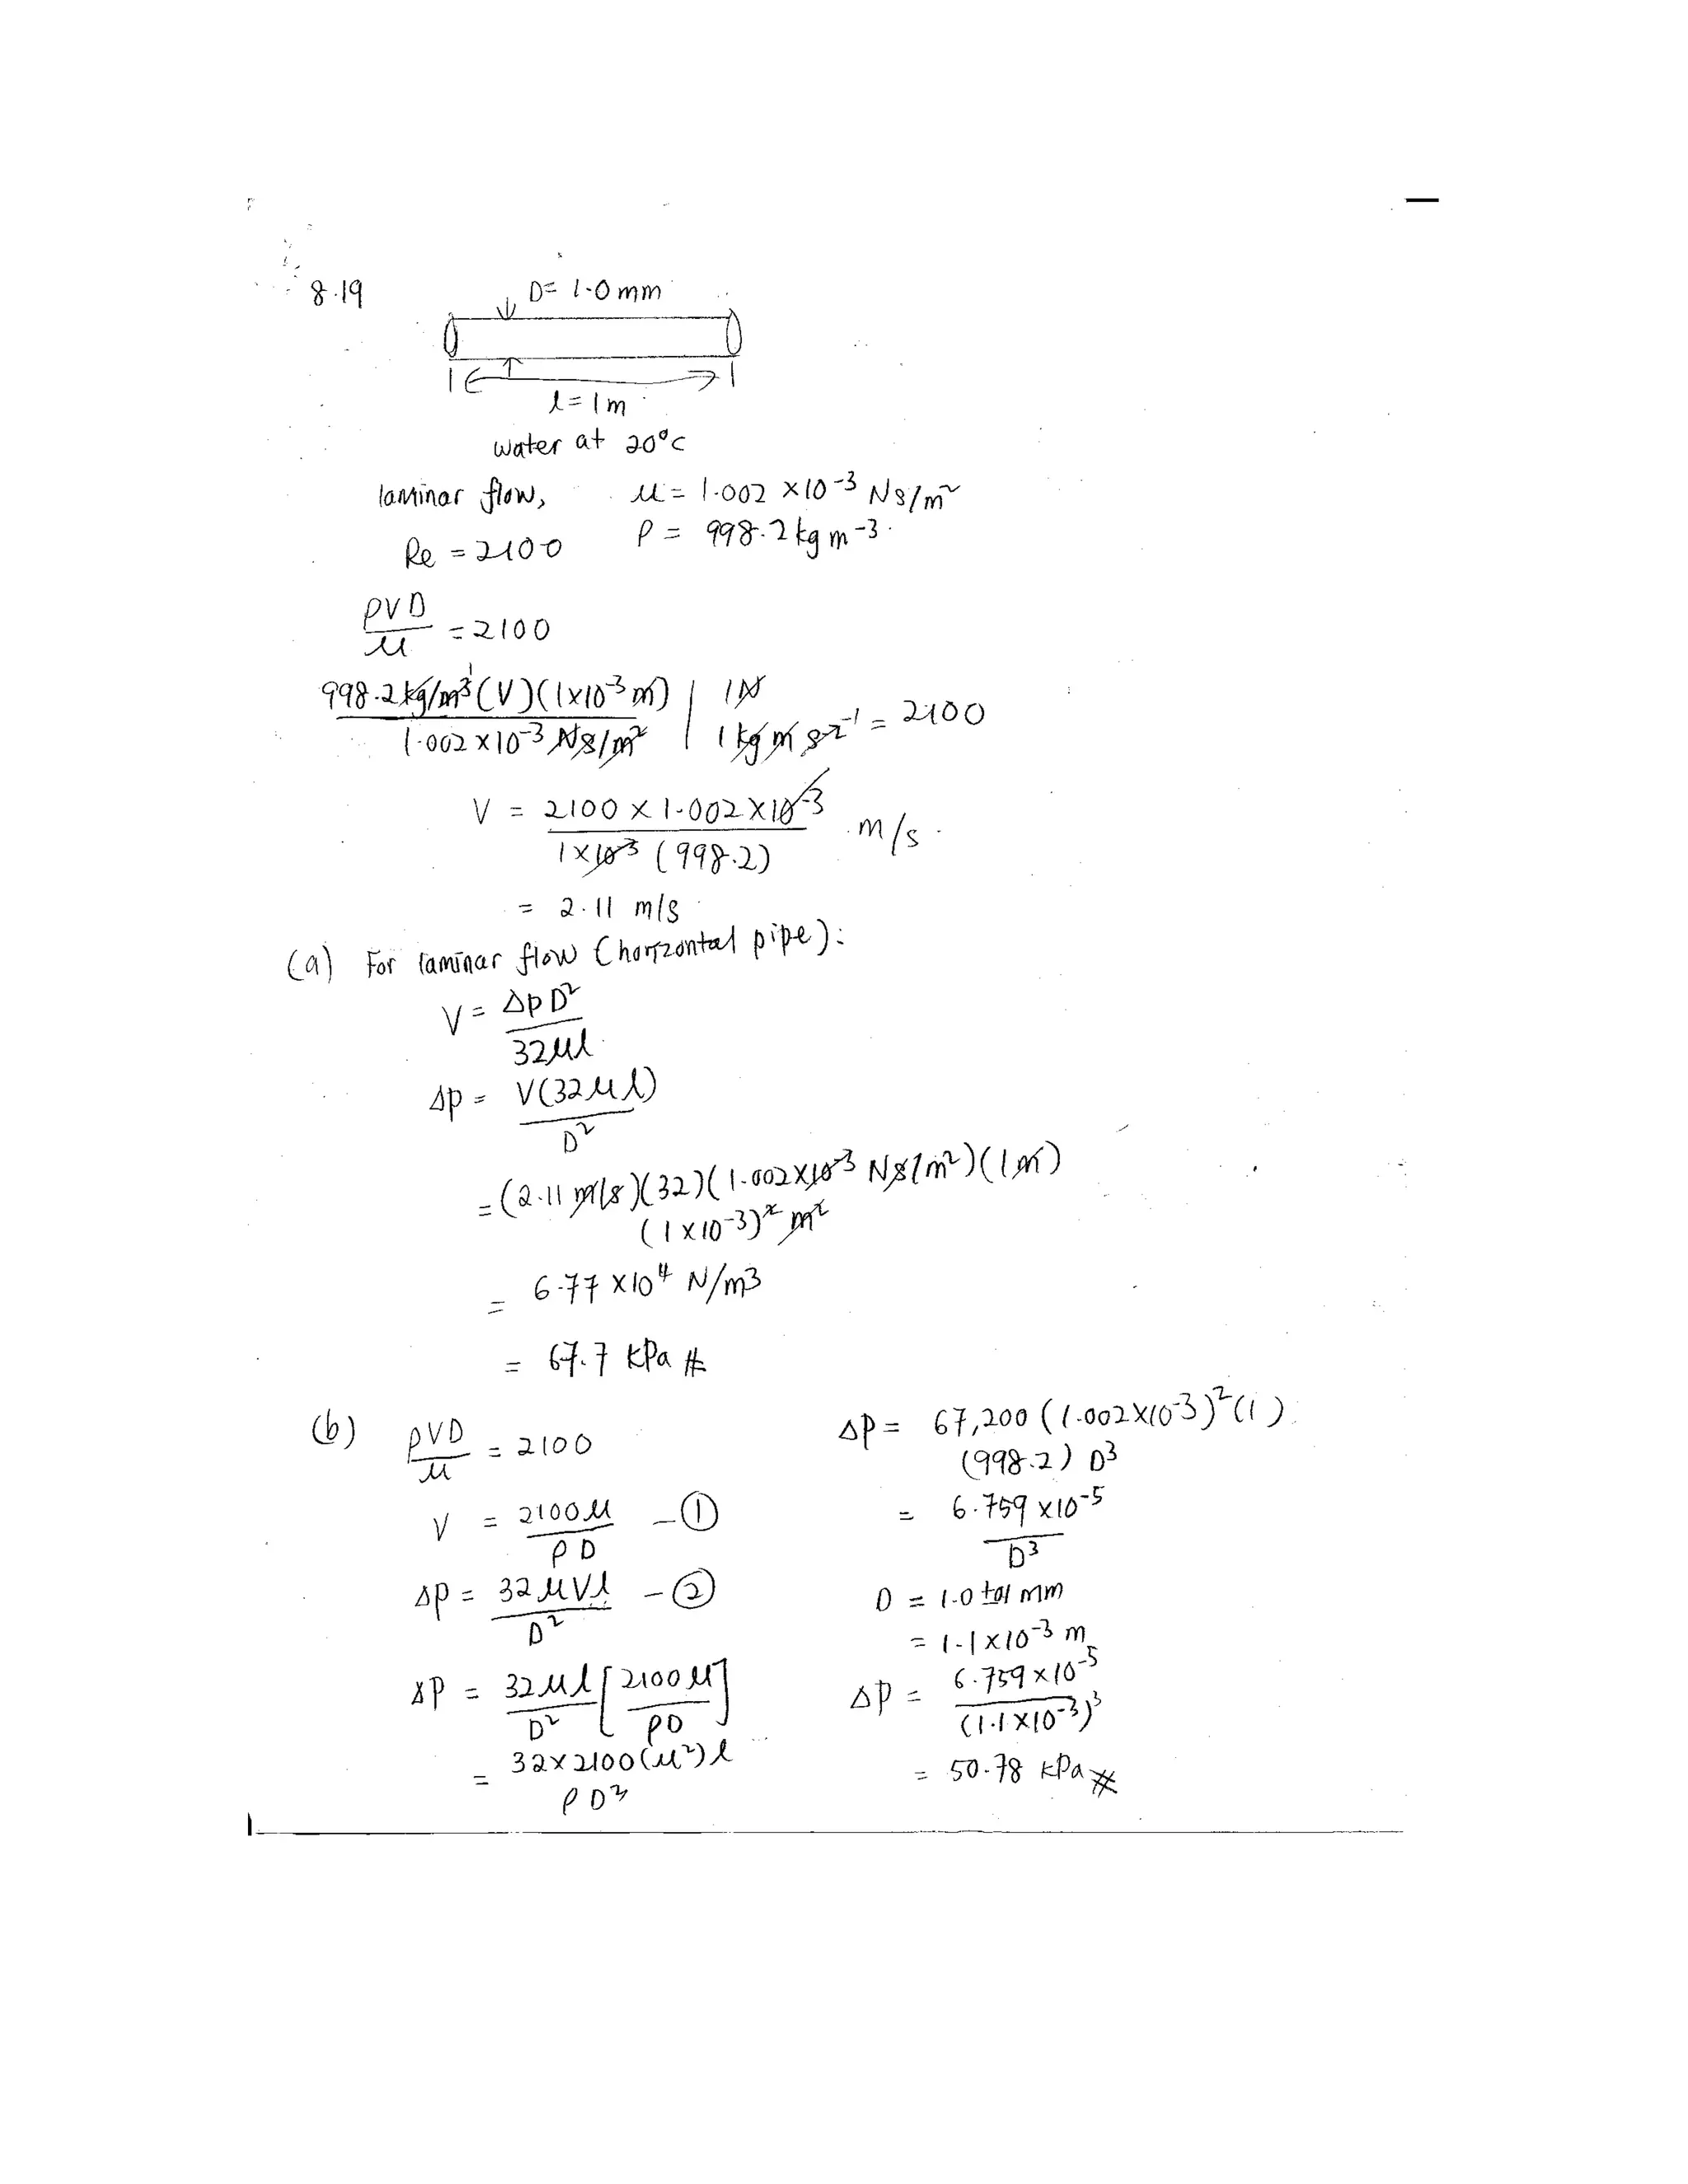 8.19
D= 1.0 mm
l = 1 m
water at 20°C
laminar flow, μ = 1.002 ×10⁻³ Ns/m²
Re = 2100 ρ = 998.2 kg m⁻³.
ρVD/μ = 2100
998.2 kg/m³ (V)(1×10⁻³ m) / 1.002 ×10⁻³ Ns/m² | 1N / 1 kg m s⁻² = 2100
V = 2100 × 1.002 × 10⁻³ / 1×10⁻³ (998.2) m/s.
= 2.11 m/s
(a) For laminar flow (horizontal pipe):
V = ΔpD² / 32μl
Δp = V(32μl) / D²
= (2.11 m/s)(32)(1.002×10⁻³ Ns/m²)(1m) / (1 × 10⁻³)² m²
= 6.77 ×10⁴ N/m3
= 67.7 kPa #
(b) ρVD/μ = 2100
V = 2100μ / ρD - ①
Δp = 32μVl / D² - ②
Δp = 32μl / D² [2100μ / ρD]
= 32×2100(μ²)l / ρD³
Δp = 67,200 (1.002×10⁻³)²(1) / (998.2) D³
= 6.759 ×10⁻⁵ / D³
D = 1.0 +0.1 mm
= 1.1×10⁻³ m
Δp = 6.759 ×10⁻⁵ / (1.1×10⁻³)³
= 50.78 kPa #